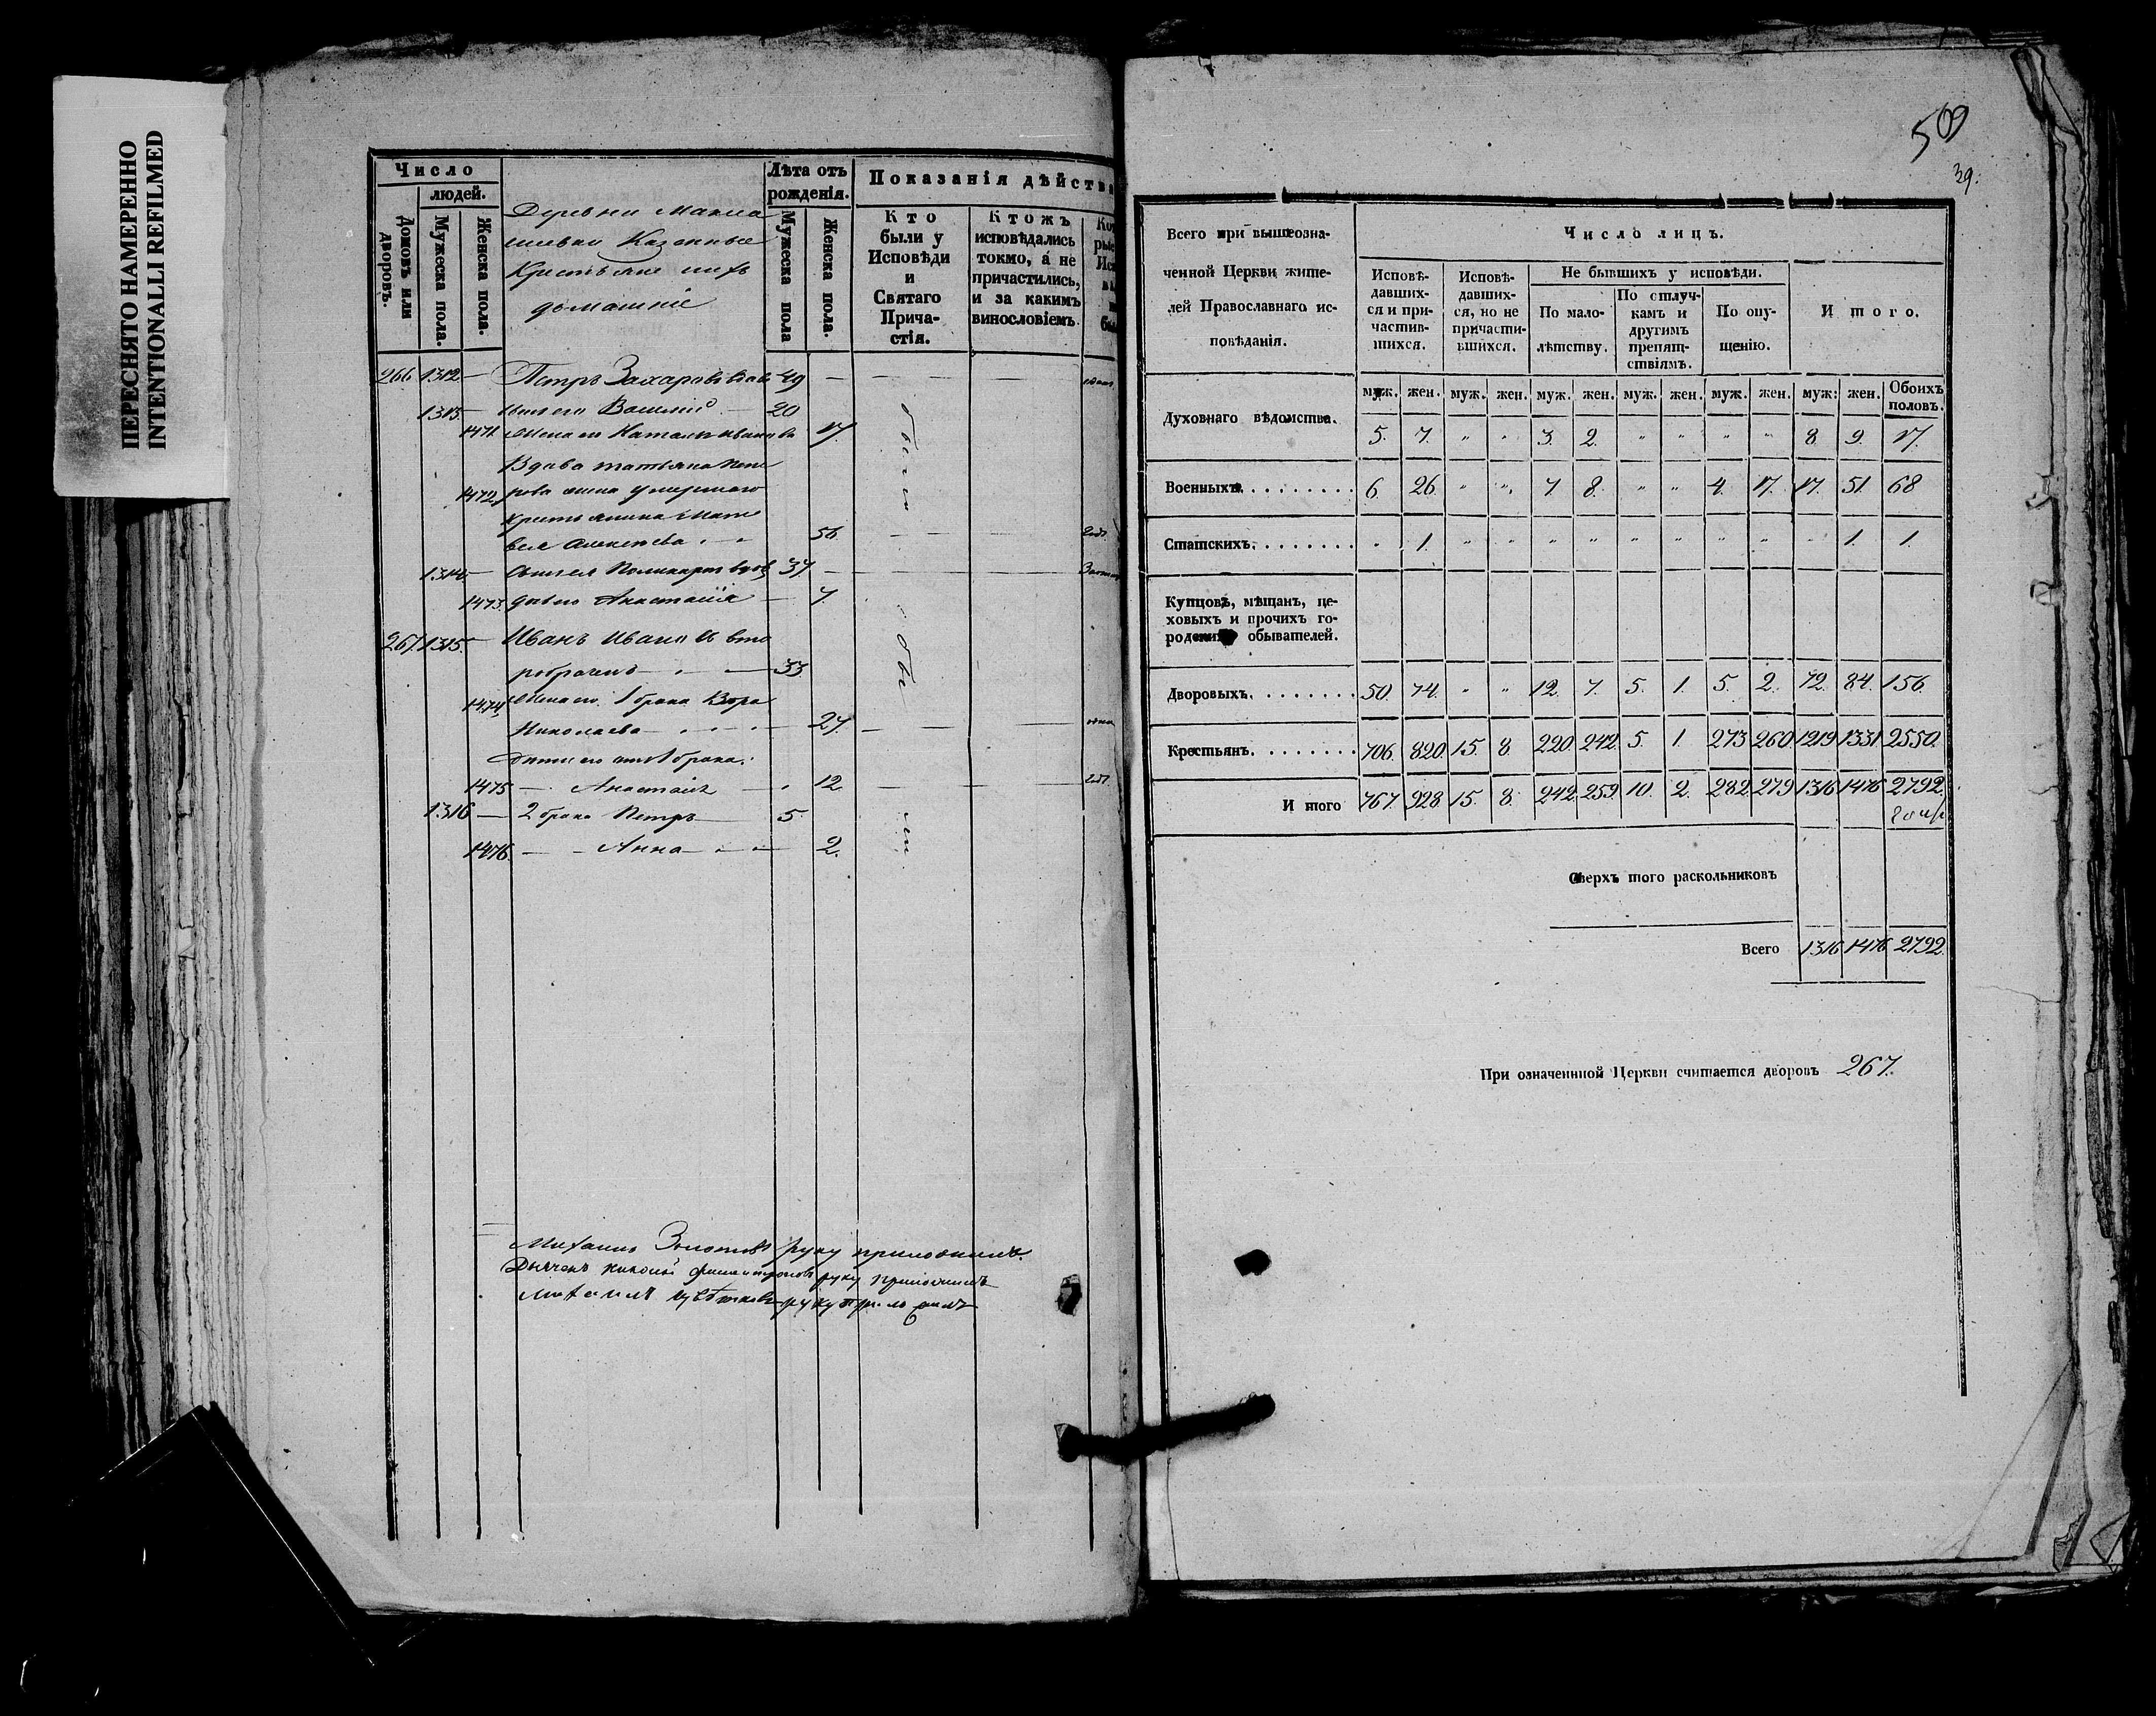 ПЕРЕСНЯТО НАМЕРЕННО
INTENTIONALLI REFILMED
Число
людей.
Домовъ или дворовъ.
Мужеска пола.
Женска пола.
Деревни
Казенные
Крестьяне ихъ
домашніе
Лѣта отъ рожденія.
Мужеска пола
Женска пола.
Показанія дѣйства
Кто были у Исповѣди и Святаго Причастія.
Ктожъ исповѣдались токмо, а не причастились, и за какимъ винословіемъ.
266 1312 — Петръ Захаровъ вдовъ 49
1313 — сынъ его Василій — 20
1471 Жена его Наталья Иванова 17
Вдова Татьяна Пет
1472 рова жена умершаго
крестьянина Мат
вея Алексѣева 56
1314 — Поликарпъ вдовъ 37
1473 дочь его Анастасія — 7
были
267 1315 — Иванъ Ивановъ вто
робраченъ — 33
1474 Жена его 1 брака Вѣра
Николаева — 27
Дѣти его 1 брака:
1475 — Анастасія 12
1316 — 2 брака Петръ — 5
1476 — Анна — 2.
бы
ли
Михаилъ руку приложилъ.
Дьячекъ Николай руку приложилъ
Михаилъ Цвѣтковъ руку приложилъ
509
39.
Всего при вышеозначенной Церкви жителей Православнаго исповѣданія.
Число лицъ.
Исповѣдавшихся и причастившихся.
Исповѣдавшихся, но не причастившихся.
Не бывшихъ у исповѣди.
По малолѣтству.
По отлучкамъ и другимъ препятствіямъ.
По опущенію.
Итого.
муж. жен. муж. жен. муж. жен. муж. жен. муж. жен. муж. жен. Обоихъ половъ.
Духовнаго вѣдомства. 5. 7. " " 3. 2. " " " " 8 9. 17.
Военныхъ. . . . . . . . 6. 26. " " 7. 8. " " 4. 17. 17. 51. 68
Статскихъ. . . . . . . . " 1. " " " " " " " " " 1. 1.
Купцовъ, мѣщанъ, цеховыхъ и прочихъ городскихъ обывателей.
Дворовыхъ. . . . . . . . 50. 74. " " 12. 7. 5. 1. 5. 2. 72. 84. 156
Крестьянъ. . . . . . . . 706. 820. 15. 8. 220. 242. 5. 1. 273 260. 1219 1331 2550.
И того 767. 928. 15. 8. 242. 259. 10. 2. 282. 279 1316 1476 2792.
Сверхъ того раскольниковъ
Всего 1316 1476 2792.
При означенной Церкви считается дворовъ 267.